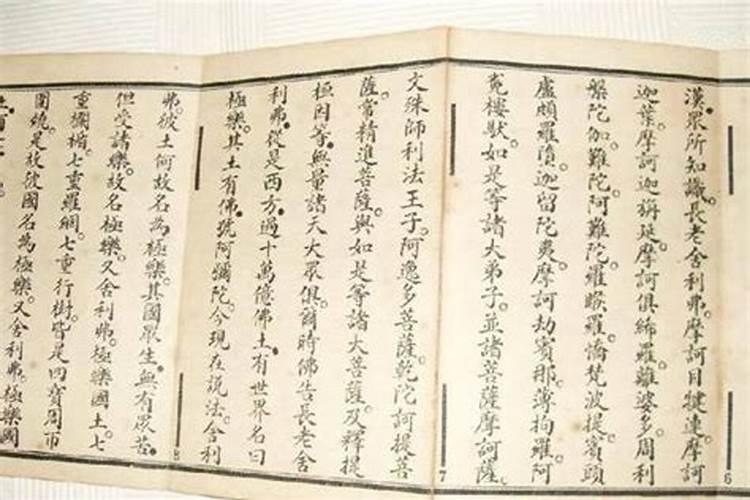 漢。眾所知識。長老舍利弗。摩訶目犍連。摩訶
迦葉。摩訶迦旃延。摩訶俱絺羅。離婆多。周利
槃陀伽。難陀。阿難陀。羅睺羅。憍梵波提。賓頭
盧頗羅墮。迦留陀夷。摩訶劫賓那。薄拘羅。阿
㝹樓馱。如是等諸大弟子。並諸菩薩摩訶薩。
文殊師利法王子。阿逸多菩薩。乾陀訶提菩
薩。常精進菩薩。與如是等諸大菩薩。及釋提
桓因等。無量諸天大眾俱。爾時佛告長老舍
利弗。從是西方。過十萬億佛土。有世界名曰
極樂。其土有佛。號阿彌陀。今現在說法。舍利
弗。彼土何故名為極樂。其國眾生。無有眾苦。
但受諸樂。故名極樂。又舍利弗。極樂國土。七
重欄楯。七重羅網。七重行樹。皆是四寶周帀
圍繞。是故彼國名為極樂。又舍利弗。極樂國
6
7
8